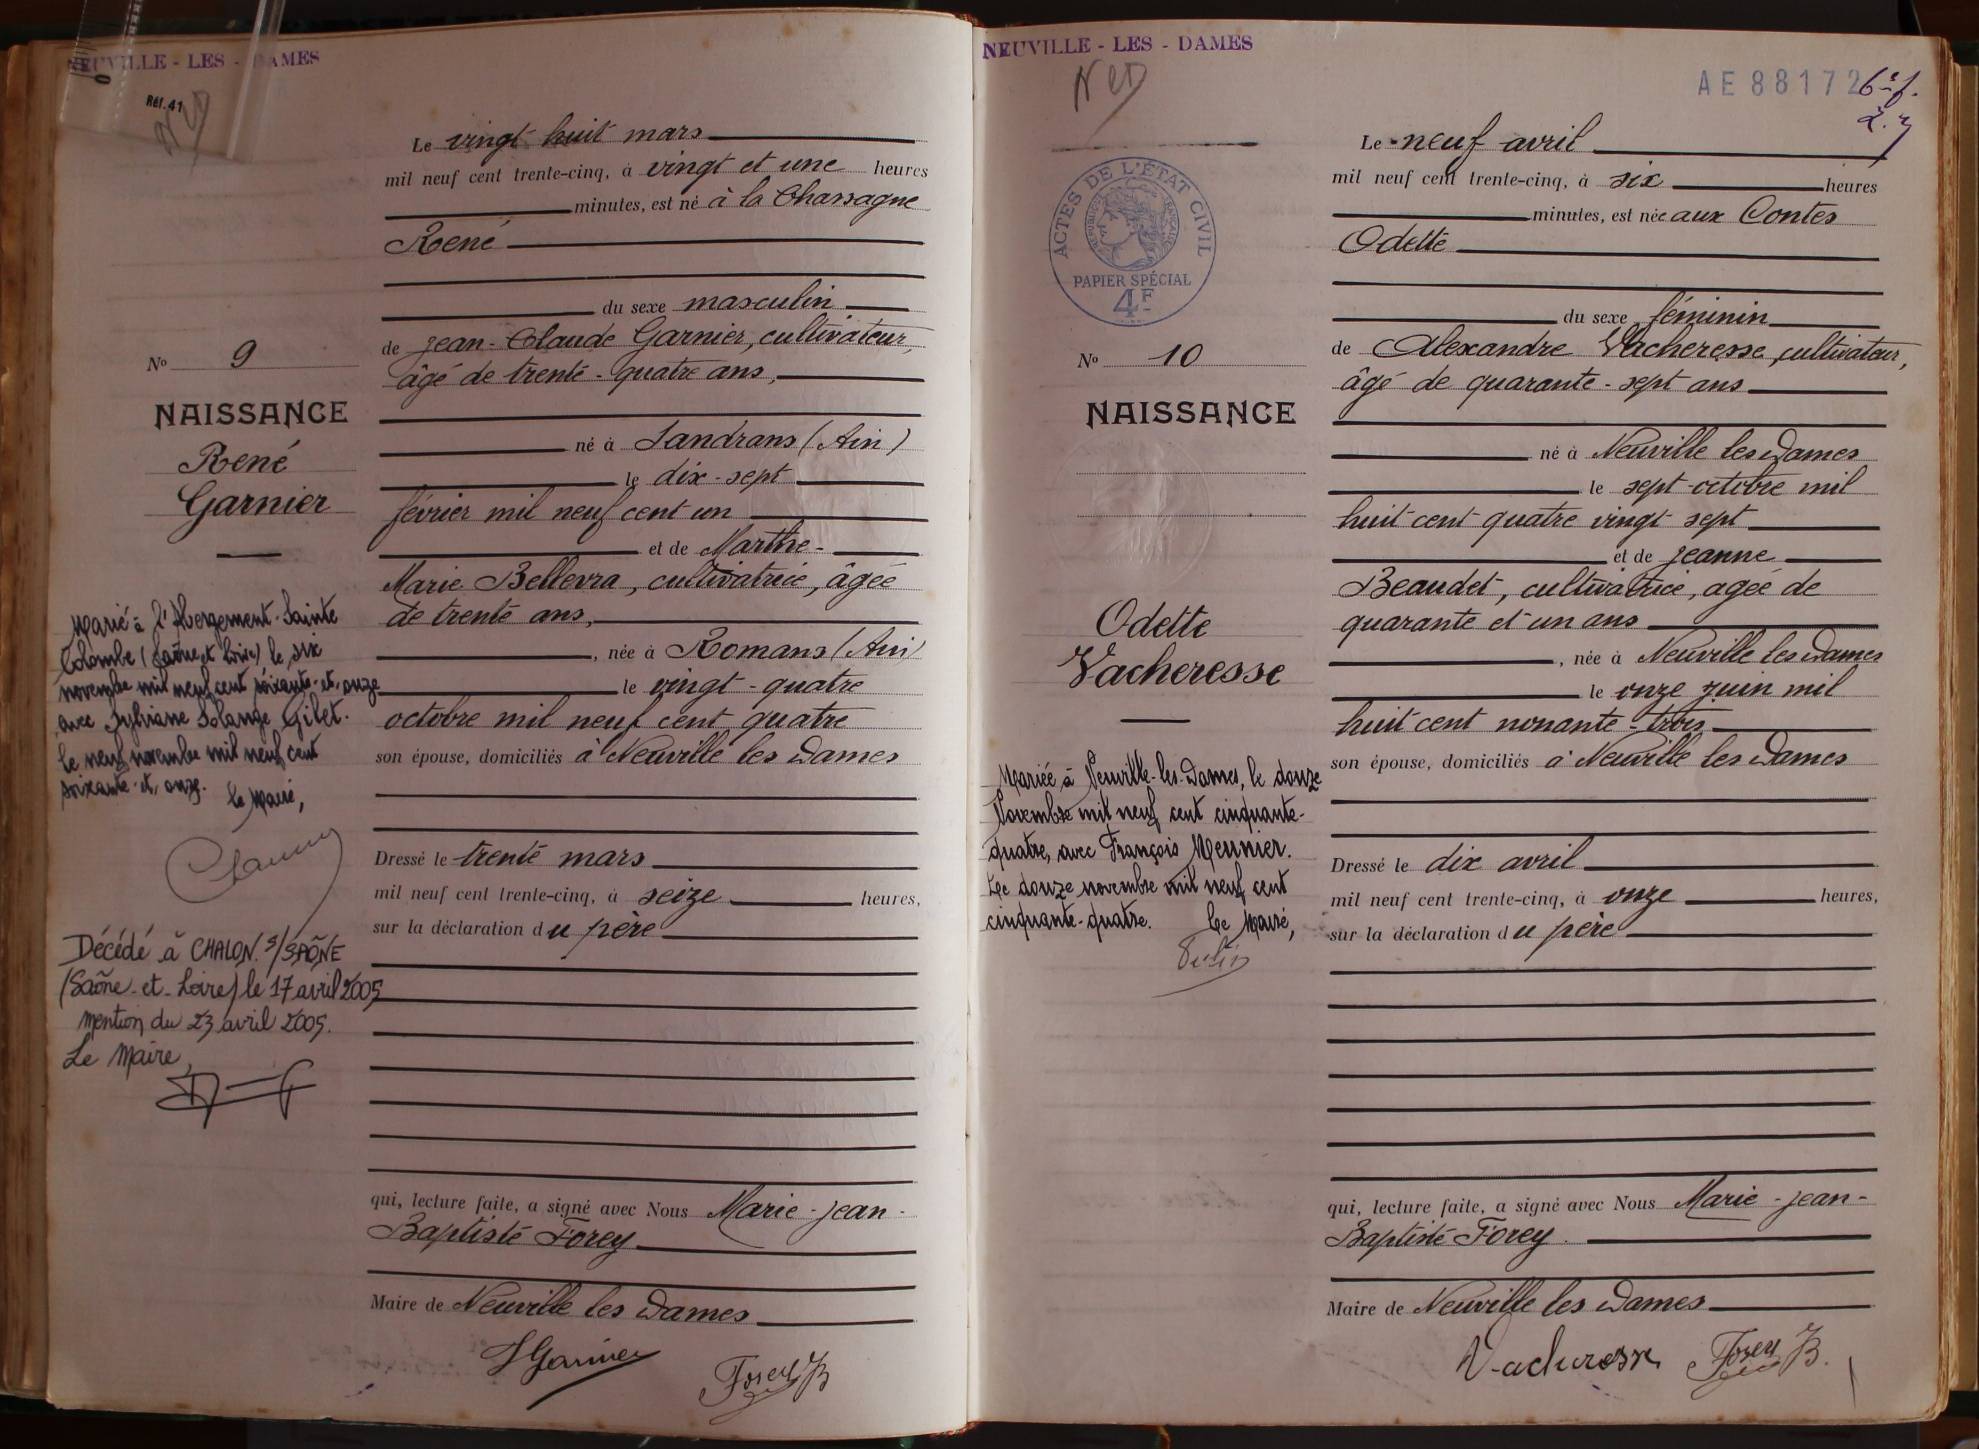 NEUVILLE - LES - DAMES
Réf. 41
Le vingt huit mars
mil neuf cent trente-cinq, à vingt et une heures
minutes, est né à la Chassagne
René
du sexe masculin
de Jean-Claude Garnier, cultivateur,
âgé de trente-quatre ans,
né à Sandrans (Ain)
le dix-sept
février mil neuf cent un
et de Marthe-
Marie Bellevra, cultivatrice, âgée
de trente ans,
, née à Romans (Ain)
le vingt-quatre
octobre mil neuf cent quatre
son épouse, domiciliés à Neuville les Dames
Dressé le trente mars
mil neuf cent trente-cinq, à seize heures,
sur la déclaration du père
qui, lecture faite, a signé avec Nous Marie-Jean-
Baptiste Forey
Maire de Neuville les Dames
JGarnier
Forey JB
No 9
NAISSANCE
René
Garnier
Marié à l'Abergement-Sainte
Colombe (Saône et Loire) le six
novembre mil neuf cent soixante-et-onze
avec Sylviane Solange Gilet.
le neuf novembre mil neuf cent
soixante-et-onze. le Maire,
Décédé à CHALON S/SAÔNE
(Saône-et-Loire) le 17 avril 2005
mention du 23 avril 2005.
Le Maire,
NEUVILLE - LES - DAMES
AE 88172
6e f.
ACTES DE L'ÉTAT CIVIL
RÉPUBLIQUE FRANÇAISE
PAPIER SPÉCIAL
4F
Le neuf avril
mil neuf cent trente-cinq, à six heures
minutes, est née aux Contes
Odette
du sexe féminin
de Alexandre Vacheresse, cultivateur,
âgé de quarante-sept ans
né à Neuville les Dames
le sept octobre mil
huit cent quatre vingt sept
et de Jeanne
Beaudet, cultivatrice, agée de
quarante et un ans
, née à Neuville les Dames
le onze juin mil
huit cent nonante-trois
son épouse, domiciliés à Neuville les Dames
Dressé le dix avril
mil neuf cent trente-cinq, à onze heures,
sur la déclaration du père
qui, lecture faite, a signé avec Nous Marie-Jean-
Baptiste Forey.
Maire de Neuville les Dames
Vacheresse Forey JB.
No 10
NAISSANCE
Odette
Vacheresse
Mariée à Neuville-les-Dames, le douze
Novembre mil neuf cent cinquante-
quatre, avec François Meunier.
Le douze novembre mil neuf cent
cinquante-quatre. Le Maire,